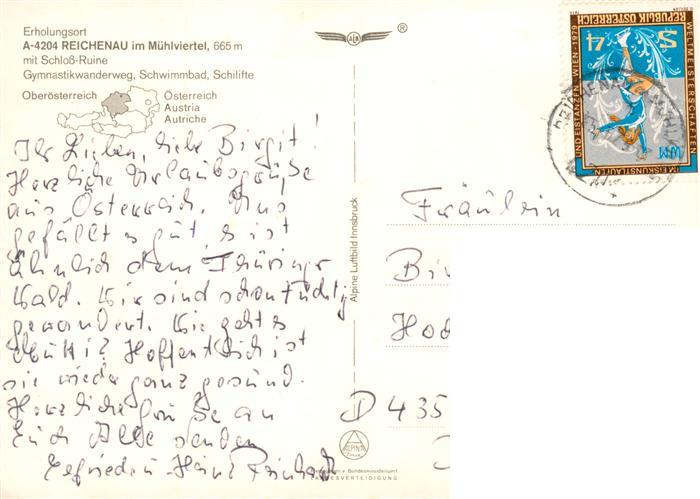 Erholungsort
A-4204 REICHENAU im Mühlviertel, 665 m
mit Schloß-Ruine
Gymnastikwanderweg, Schwimmbad, Schilifte
Oberösterreich
Österreich
Austria
Autriche
Ihr Lieben, liebe Birgit!
Herzliche Urlaubsgrüße
aus Österreich. Uns
gefällt es gut, es ist
ähnlich dem Thüringer
Wald. Wir sind schon tüchtig
gewandert. Wie geht es
Mutti? Hoffentlich ist
sie wieder ganz gesund.
Herzliche Grüße an
Euch Alle senden
Heinz
Alpine Luftbild Innsbruck
®
REPUBLIK ÖSTERREICH
S 4
WELTMEISTERSCHAFTEN
IM EISKUNSTLAUFEN
UND EISTANZEN · WIEN · 1979
WM
Fräulein
Bir
Hod
D 435
ALPINA
LANDESVERTEIDIGUNG